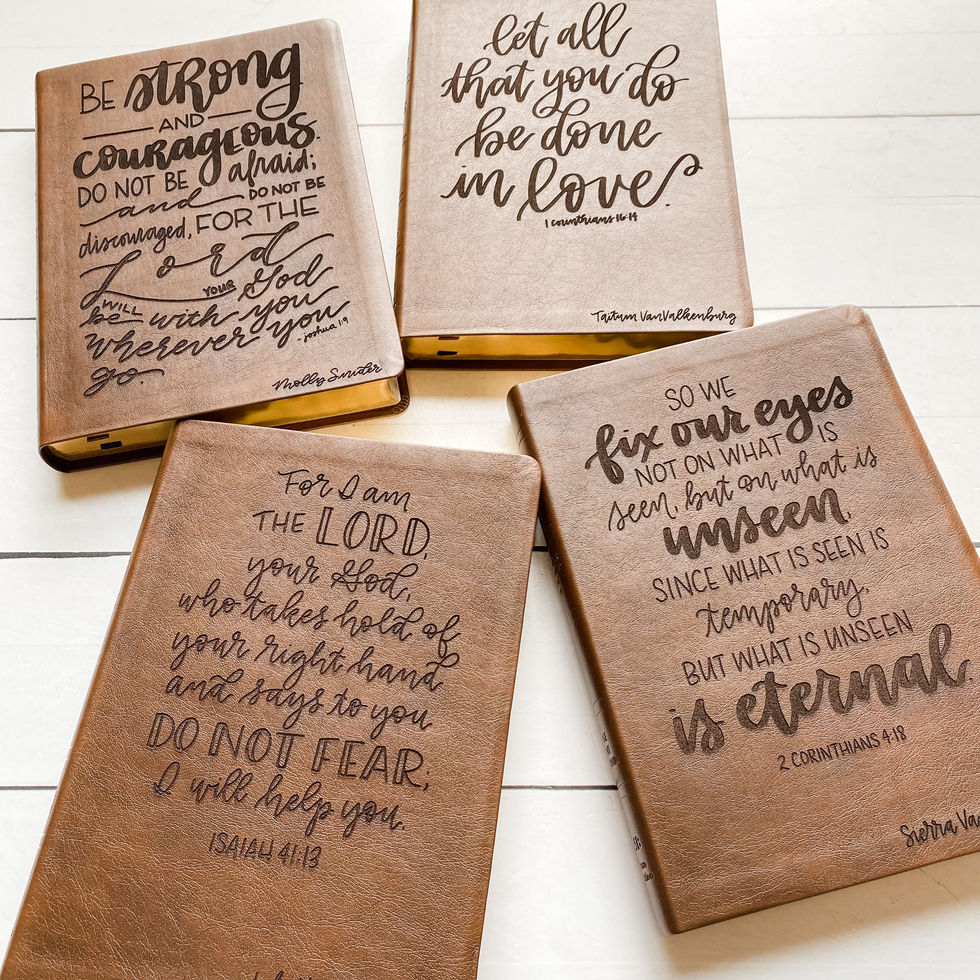 BE strong
AND
courageous.
DO NOT BE afraid;
and DO NOT BE
discouraged, FOR THE
Lord
WILL YOUR God
be with you
wherever you
go. - joshua 1:9
Molly Snider
let all
that you do
be done
in love.
1 corinthians 16:14
Taitum VanValkenburg
For I am
THE LORD,
your God,
who takes hold of
your right hand
and says to you
DO NOT FEAR;
I will help you.
ISAIAH 41:13
SO WE
fix our eyes
NOT ON WHAT IS
seen, but on what is
unseen,
SINCE WHAT IS SEEN IS
temporary,
BUT WHAT IS UNSEEN
is eternal.
2 CORINTHIANS 4:18
Sierra Va